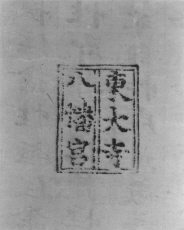 東大寺
八幡宮